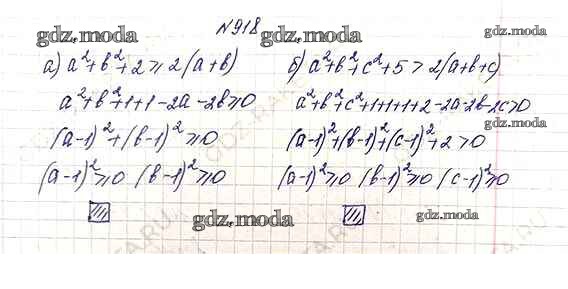 №918
gdz.moda gdz.moda
а) a²+b²+2 ⩾ 2(a+b)
a²+b²+1+1-2a-2b⩾0
(a-1)²+(b-1)²⩾0
(a-1)²⩾0 (b-1)²⩾0
б) a²+b²+c²+5>2(a+b+c)
a²+b²+c²+1+1+1+2-2a-2b-2c>0
gdz.moda
(a-1)²+(b-1)²+(c-1)²+2>0
(a-1)²⩾0 (b-1)²⩾0 (c-1)²⩾0
gdz.moda gdz.moda